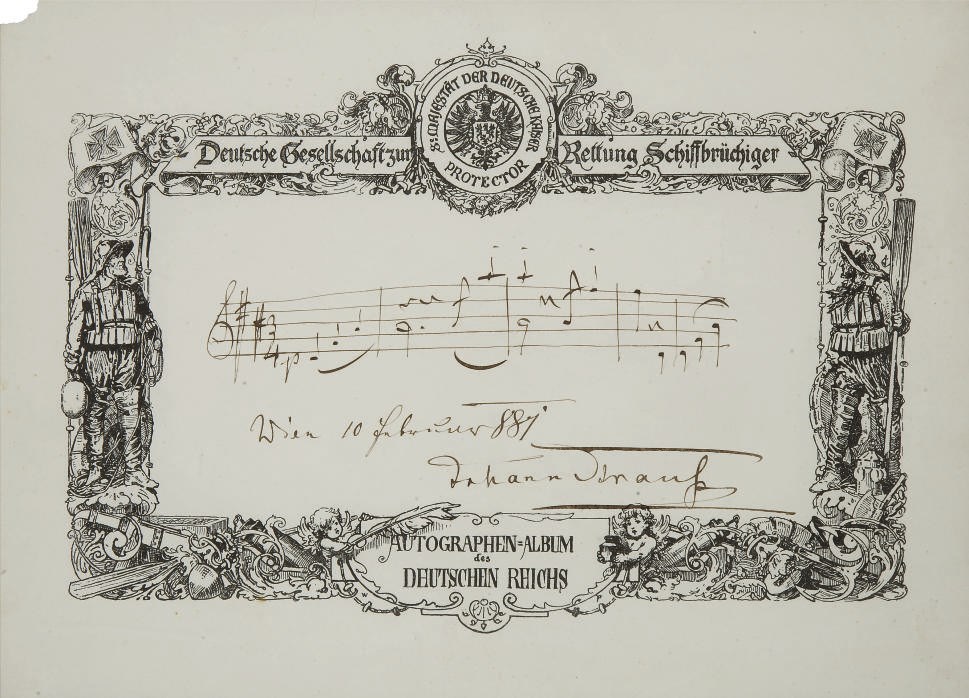 SE MAJESTÄT DER DEUTSCHE KAISER
PROTECTOR
Deutsche Gesellschaft zur Rettung Schiffbrüchiger
3
4 p
Wien 10 Februar 887
Johann Strauß
AUTOGRAPHEN=ALBUM
des
DEUTSCHEN REICHS